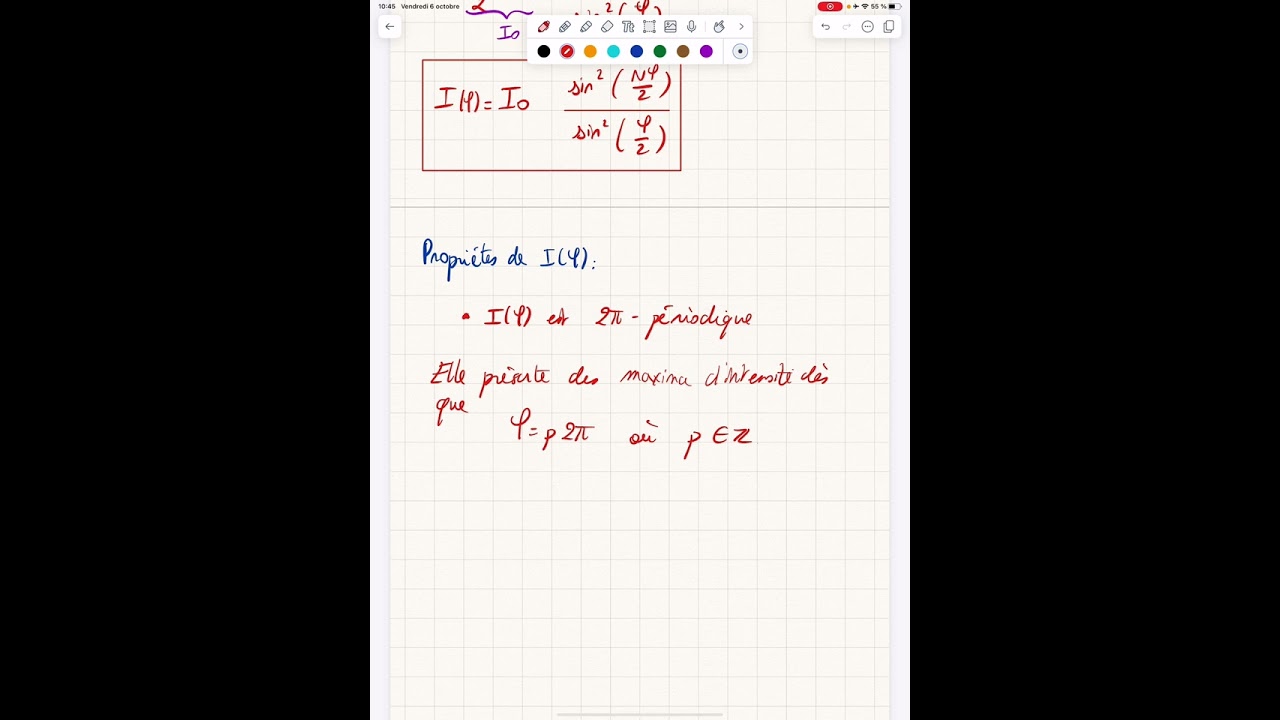 10:45 Vendredi 6 octobre
55 %
I₀
I(φ) = I₀ sin²(Nφ/2) / sin²(φ/2)
Propriétés de I(φ):
• I(φ) est 2π - périodique
Elle présente des maxima d'intensité dès
que
φ = p 2π où p ∈ ℤ